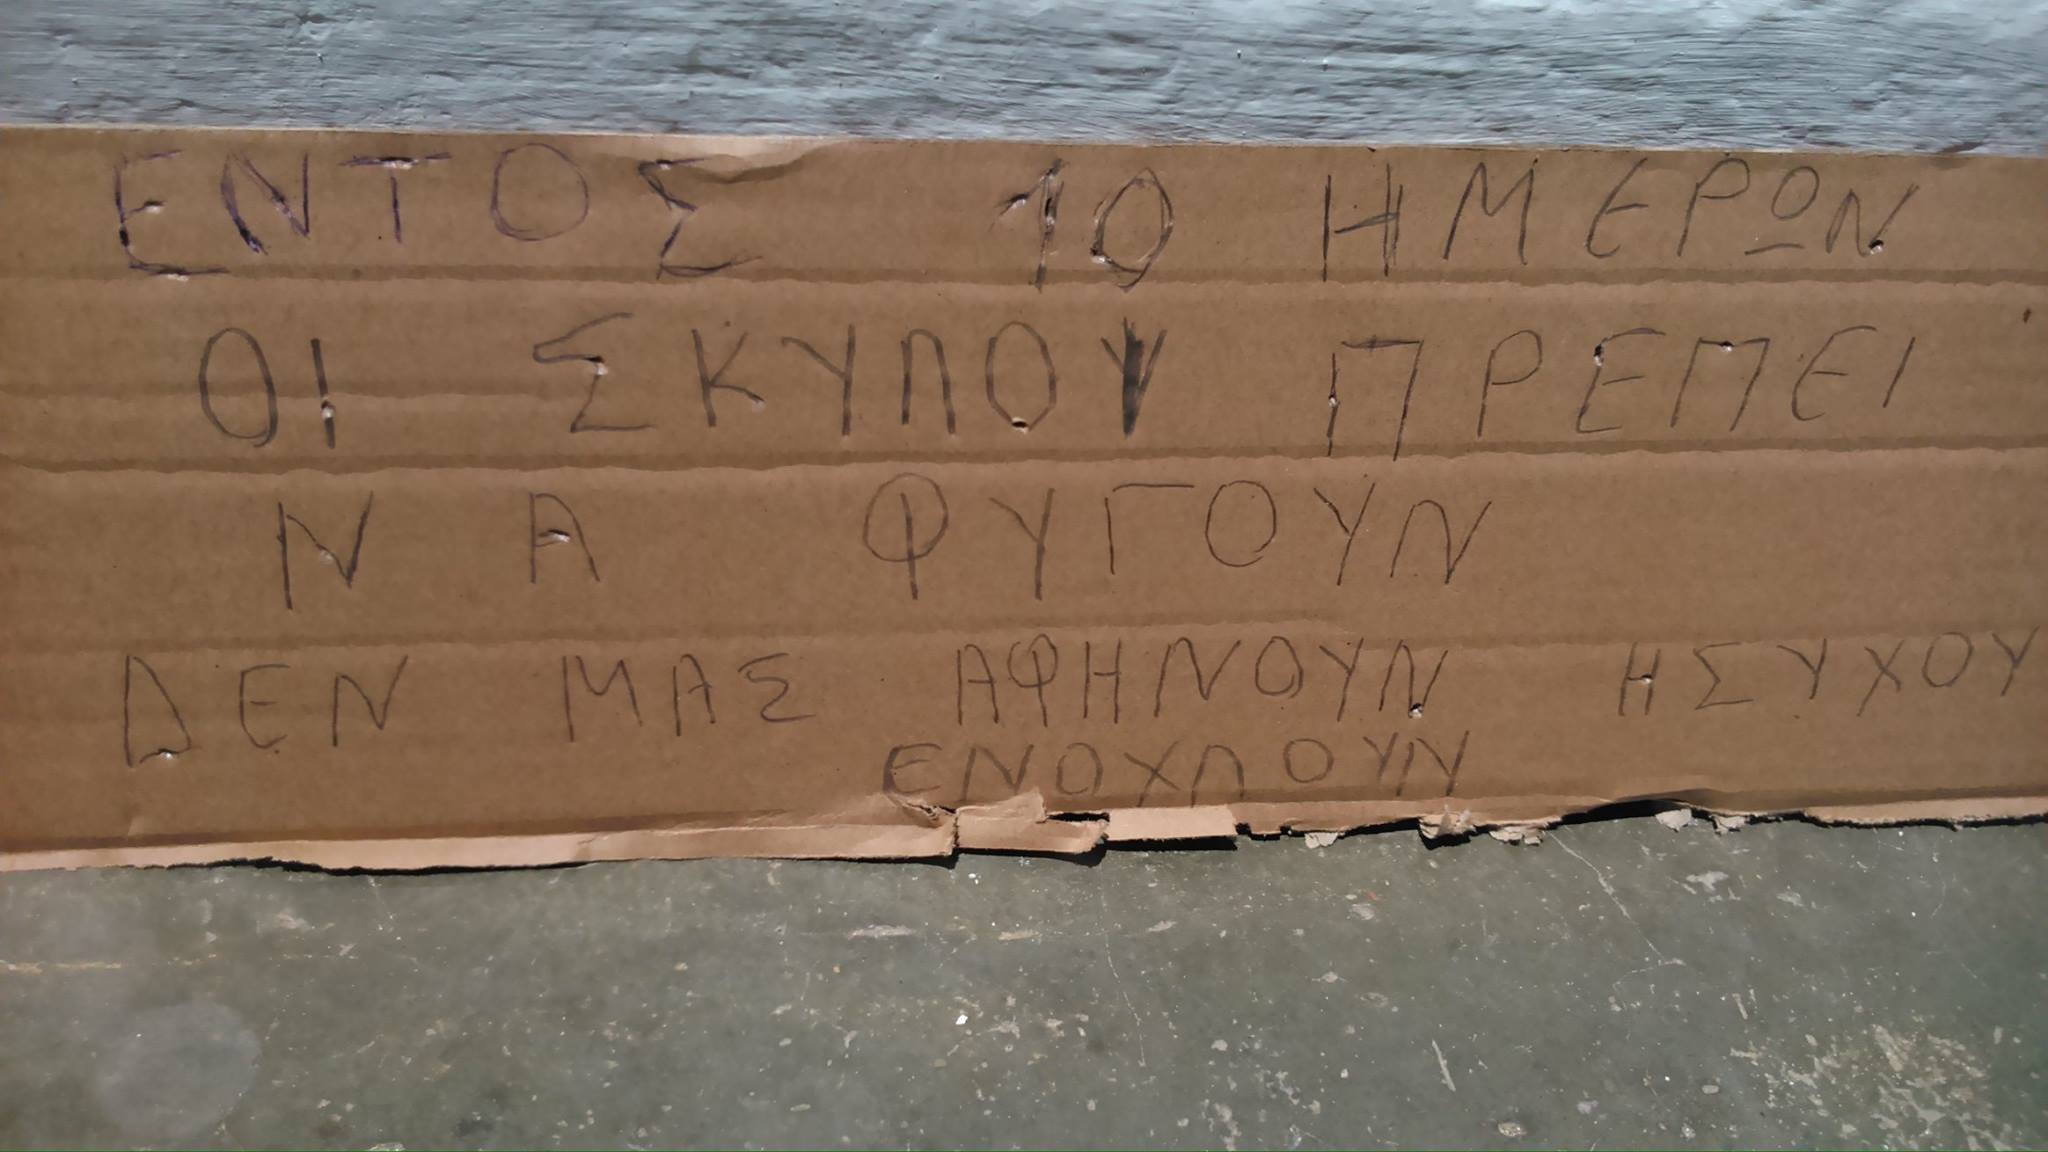 ΕΝΤΟΣ 10 ΗΜΕΡΩΝ
ΟΙ ΣΚΥΛΟΥ ΠΡΕΠΕΙ
ΝΑ ΦΥΓΟΥΝ
ΔΕΝ ΜΑΣ ΑΦΗΝΟΥΝ ΗΣΥΧΟΥ
ΕΝΟΧΛΟΥΝ